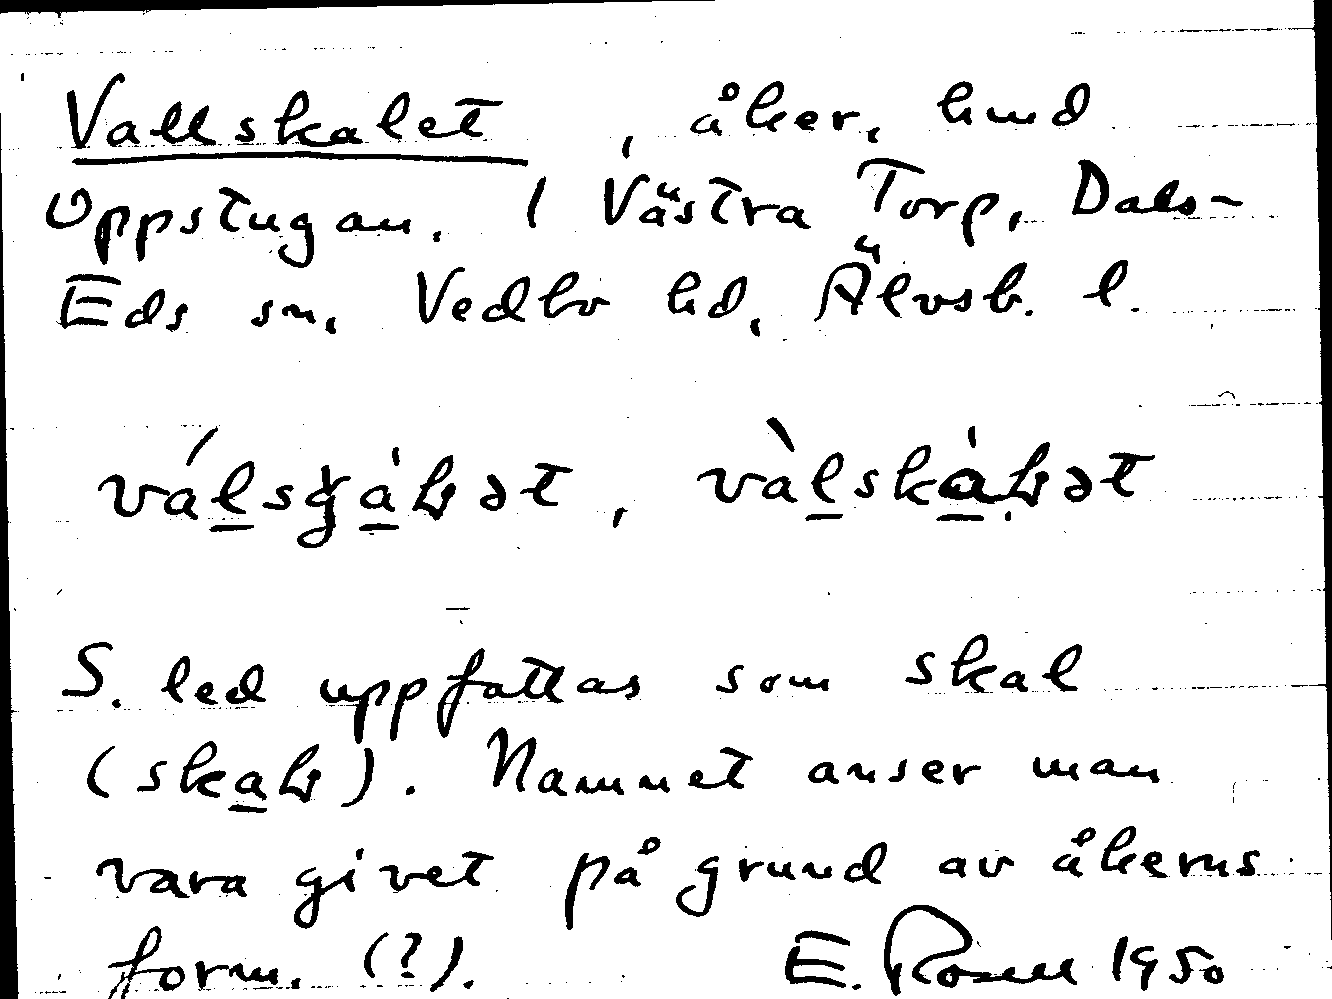 Vallskalet, åker, hmd
Uppstugan. I Västra Torp, Dals-
Eds sn. Vedbo hd, Älvsb. l.
S. led uppfattas som skal
Namnet anser man
vara givet på grund av åkerns
form. (?). E. Rosell 1950